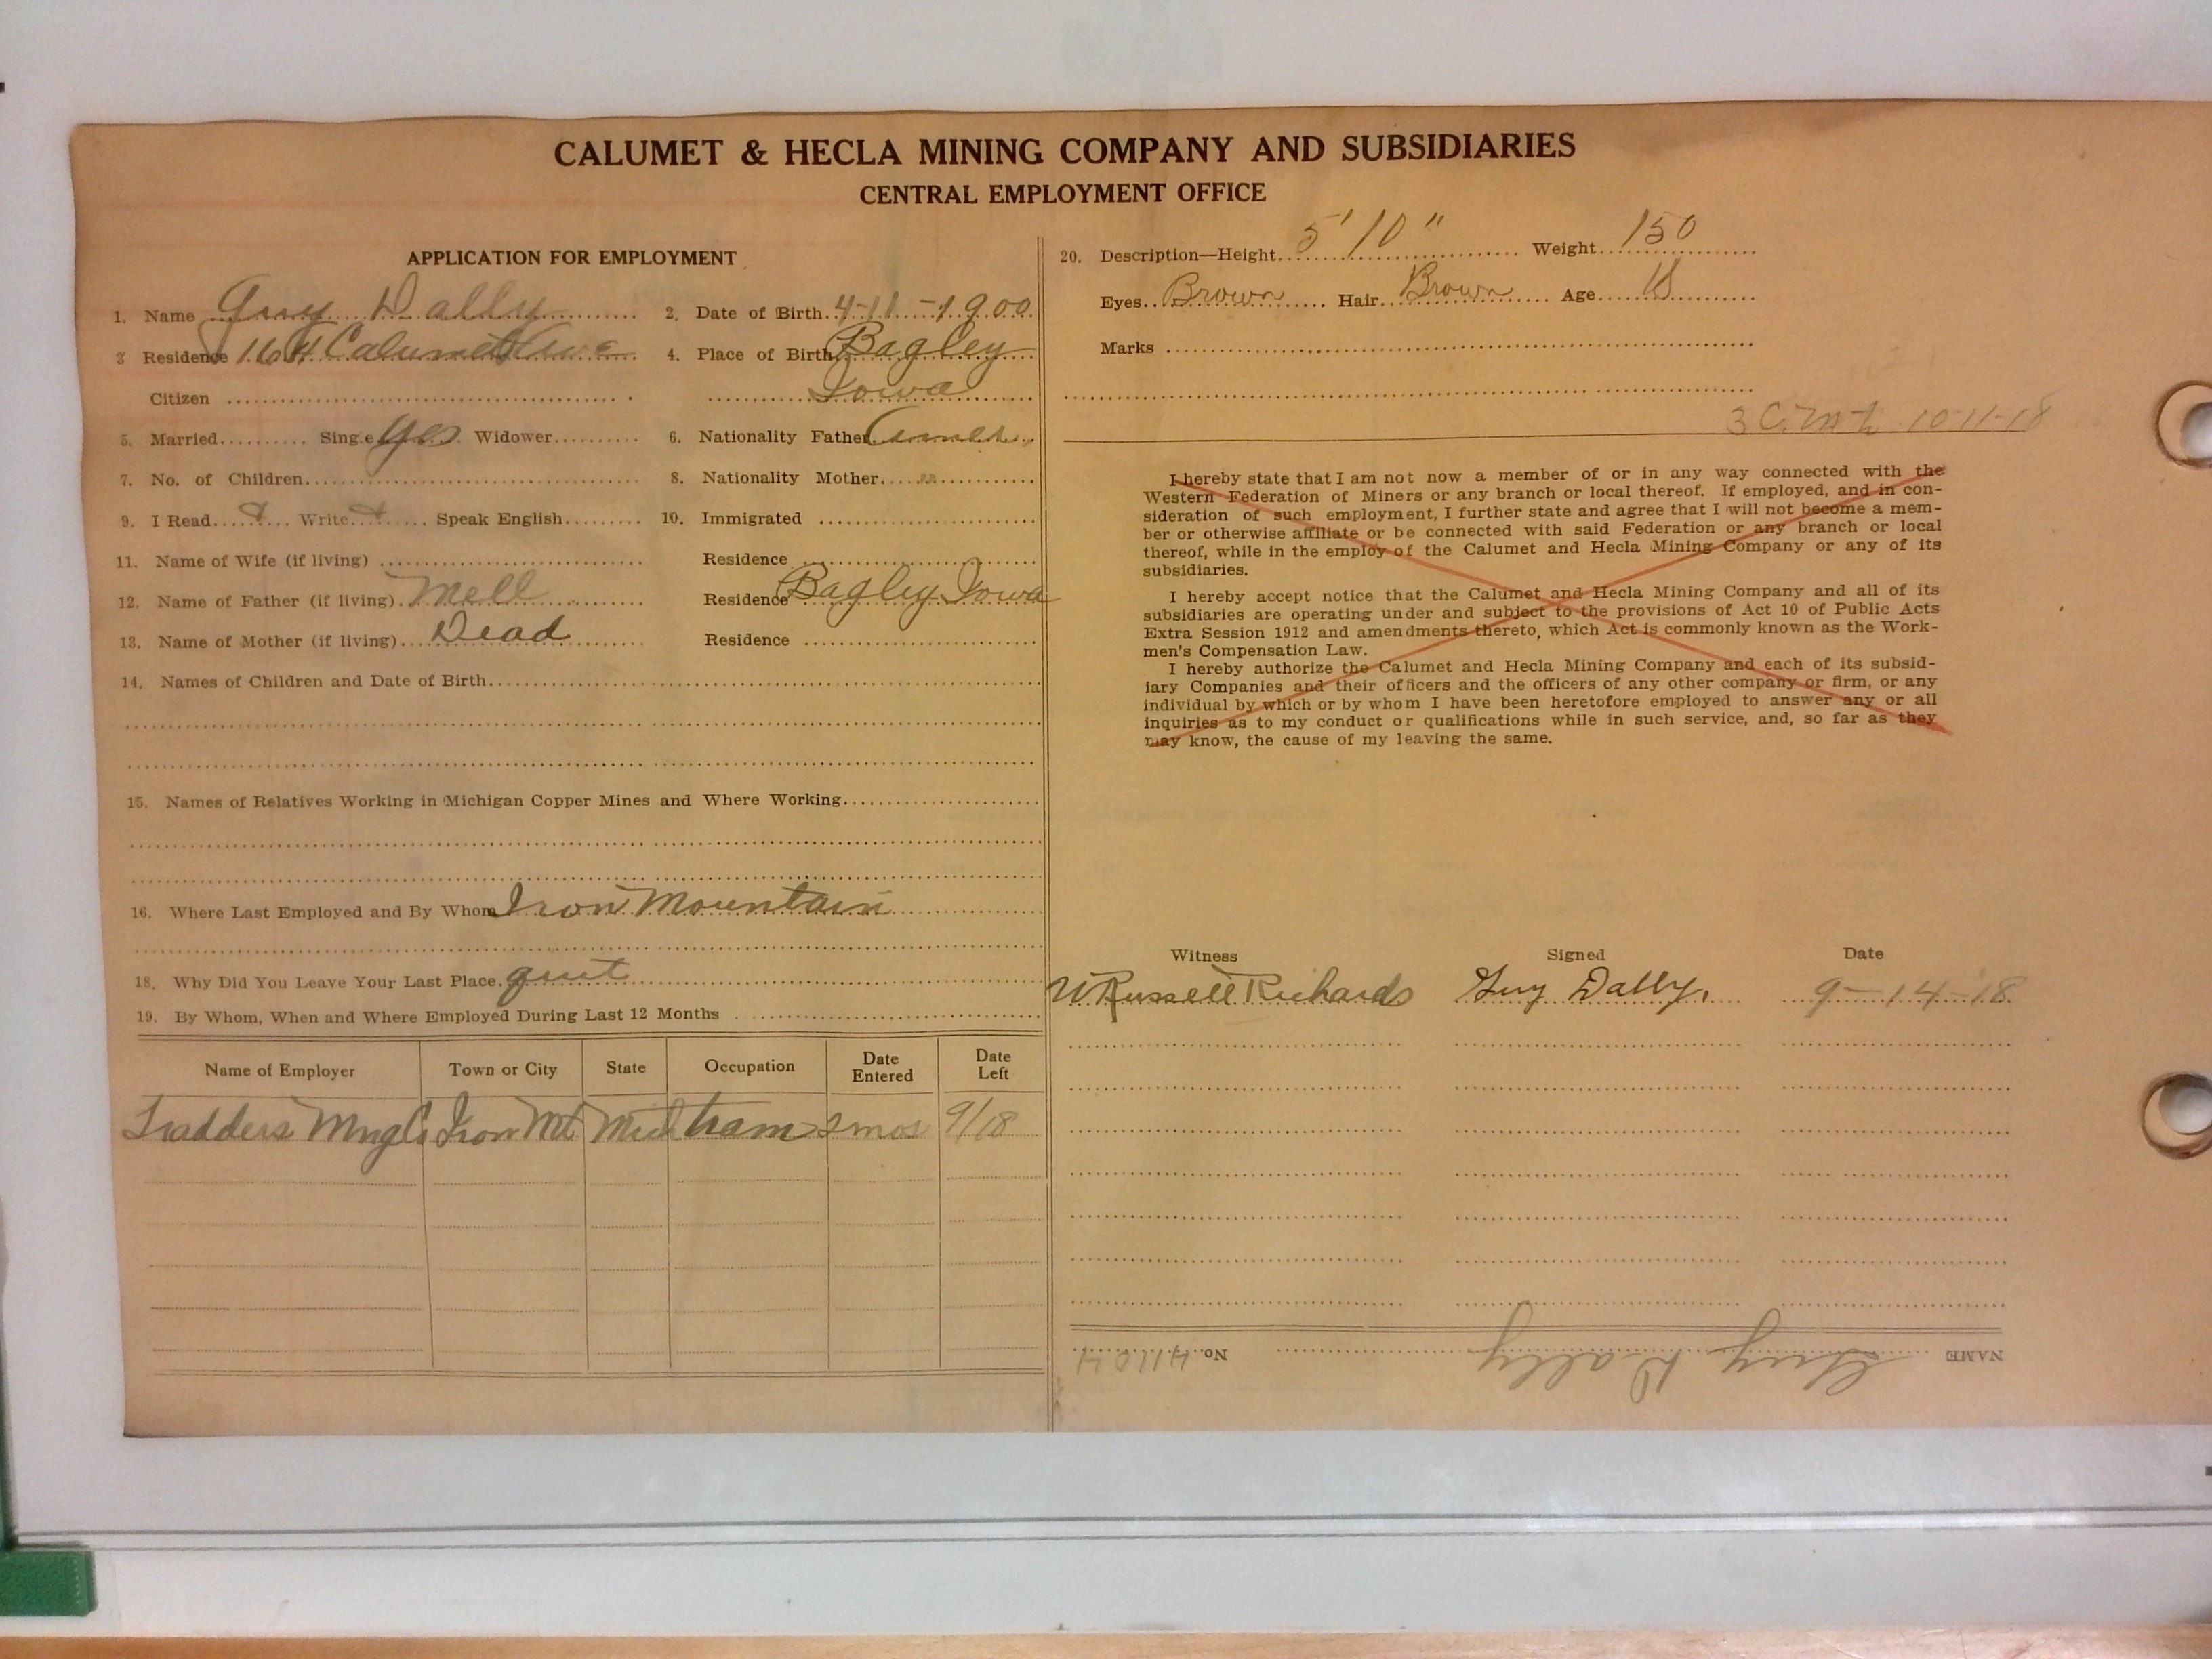 CALUMET & HECLA MINING COMPANY AND SUBSIDIARIES
CENTRAL EMPLOYMENT OFFICE
APPLICATION FOR EMPLOYMENT
1. Name Guy Dally
2. Date of Birth 4-11-1900
3 Residence 164 Calumet Ave
4. Place of Birth Bagley
Citizen
Iowa
5. Married Single Yes Widower
6. Nationality Father Amer.
7. No. of Children
8. Nationality Mother "
9. I Read Write Speak English
10. Immigrated
11. Name of Wife (if living)
Residence
12. Name of Father (if living) Mell
Residence Bagley Iowa
13. Name of Mother (if living) Dead
Residence
14. Names of Children and Date of Birth
15. Names of Relatives Working in Michigan Copper Mines and Where Working
16. Where Last Employed and By Whom Iron Mountain
18. Why Did You Leave Your Last Place. quit
19. By Whom, When and Where Employed During Last 12 Months
Name of Employer Town or City State Occupation Date Entered Date Left
Mng Co Iron Mt Mich tram 2 mos 9/18
20. Description—Height 5' 10" Weight 150
Eyes Brown Hair Brown Age 18
Marks
10-11-18
I hereby state that I am not now a member of or in any way connected with the
Western Federation of Miners or any branch or local thereof. If employed, and in con-
sideration of such employment, I further state and agree that I will not become a mem-
ber or otherwise affiliate or be connected with said Federation or any branch or local
thereof, while in the employ of the Calumet and Hecla Mining Company or any of its
subsidiaries.
I hereby accept notice that the Calumet and Hecla Mining Company and all of its
subsidiaries are operating under and subject to the provisions of Act 10 of Public Acts
Extra Session 1912 and amendments thereto, which Act is commonly known as the Work-
men's Compensation Law.
I hereby authorize the Calumet and Hecla Mining Company and each of its subsid-
iary Companies and their officers and the officers of any other company or firm, or any
individual by which or by whom I have been heretofore employed to answer any or all
inquiries as to my conduct or qualifications while in such service, and, so far as they
may know, the cause of my leaving the same.
Witness Signed Date
W Russell Richards Guy Dally. 9-14-18
NAME Guy Dally No. 41104